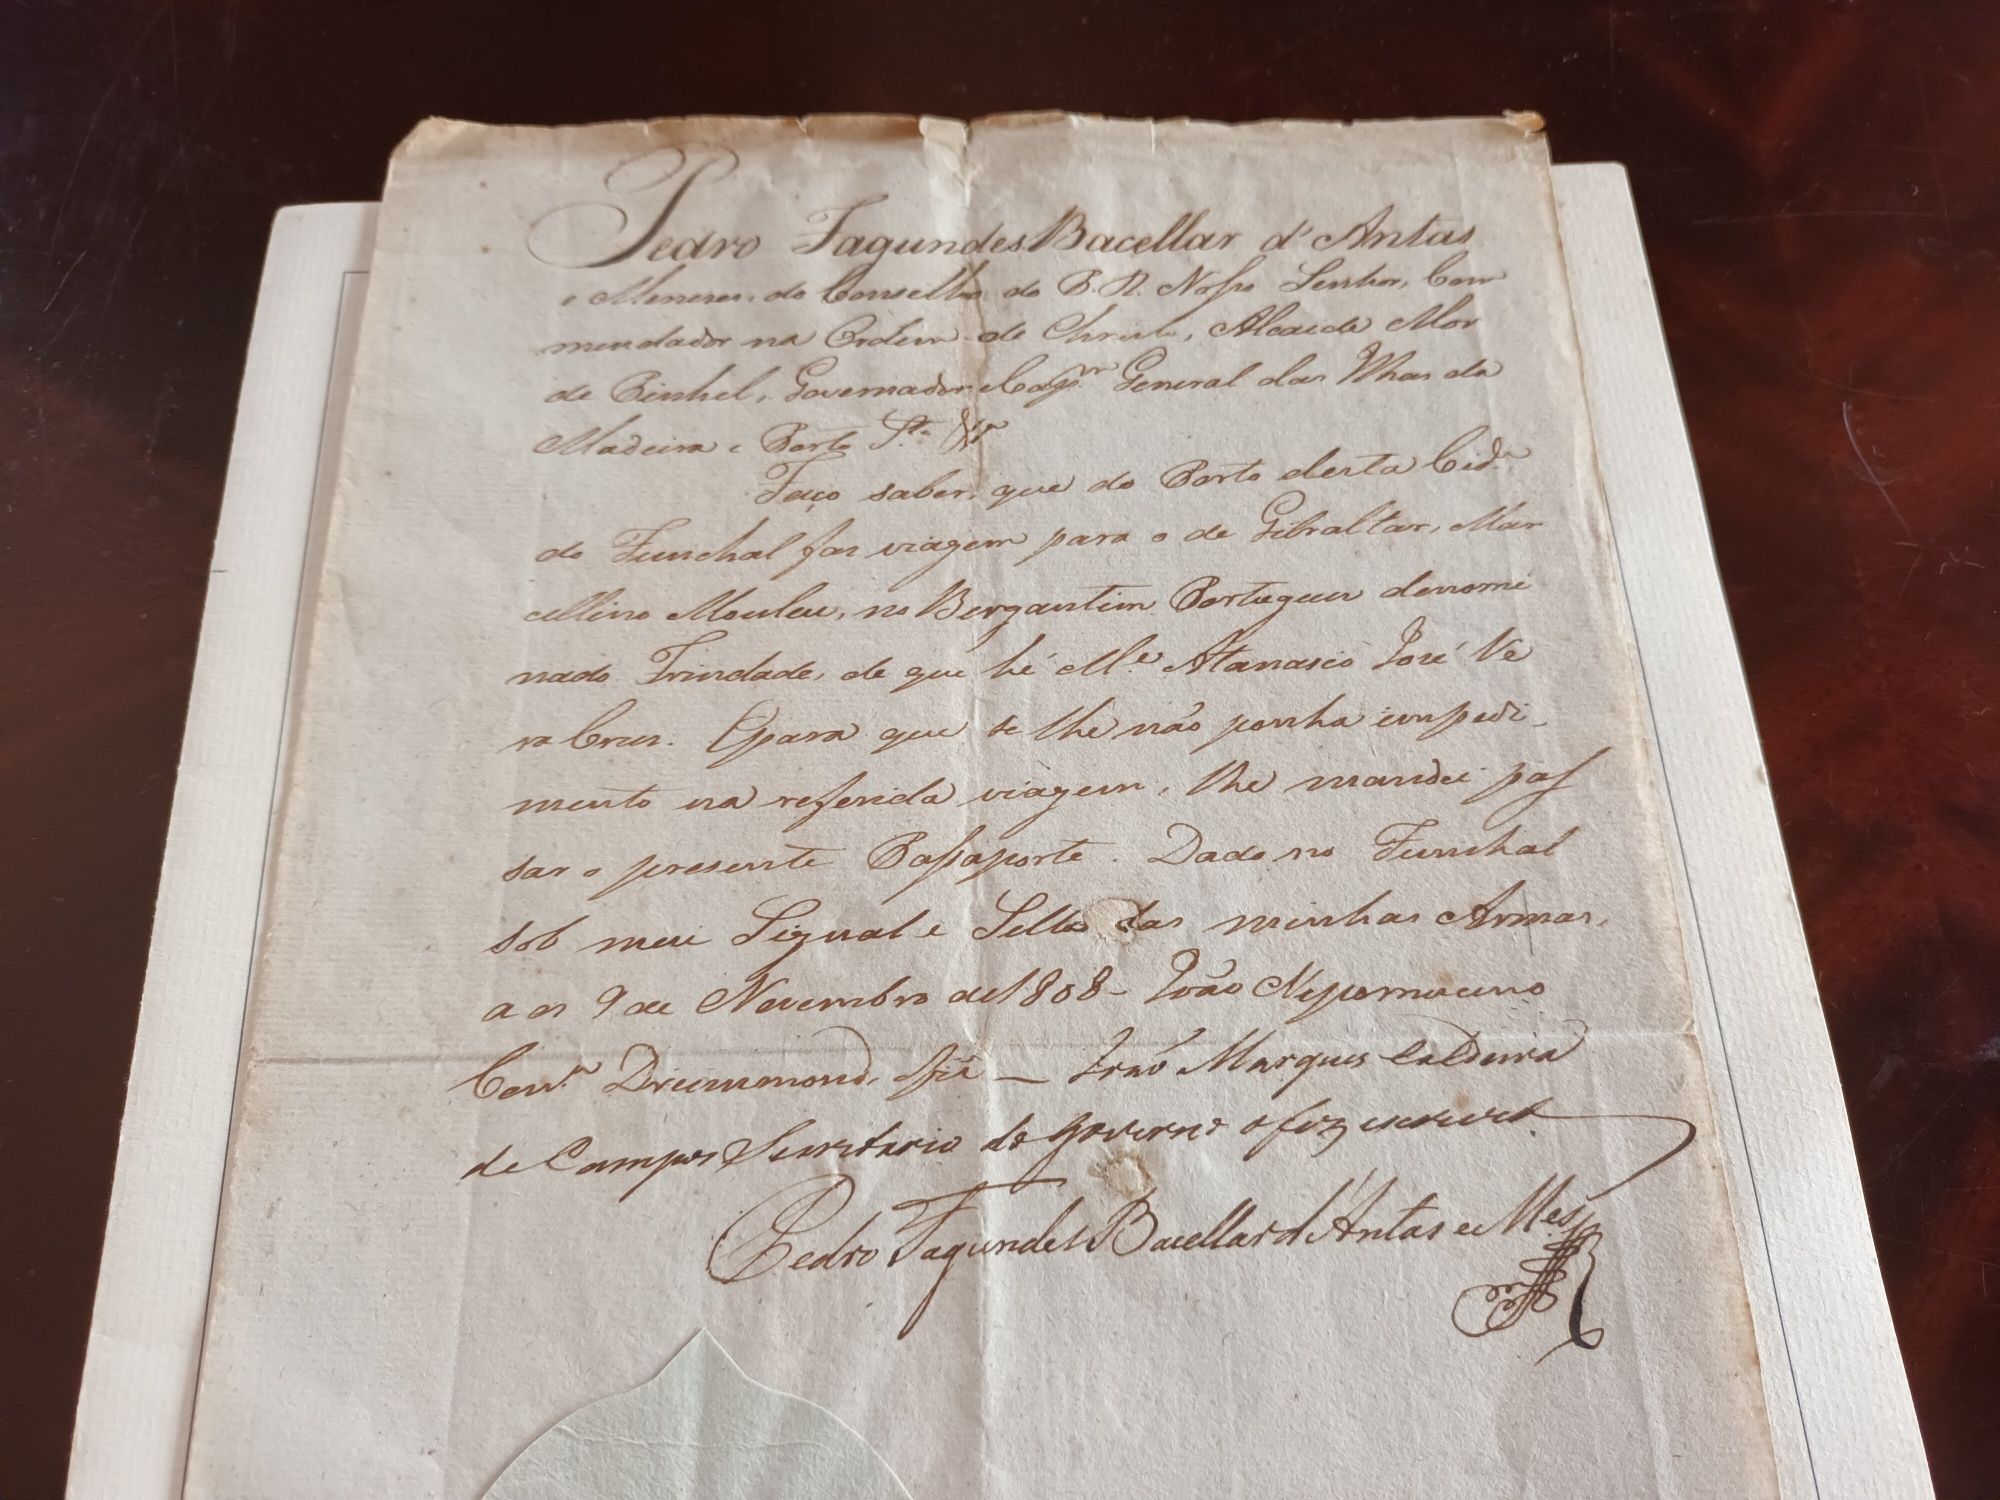 Pedro Fagundes Bacellar d'Antas
e Menezes, do Conselho do P. R. Nosso Senhor, Com
mendador na Ordem de Christo, Alcaide Mor
de Pinhel, Governador e Cap.m General das Ilhas da
Madeira e Porto S.to
Faço saber, que do Porto desta Cid.e
do Funchal faz viagem para o de Gibraltar, Mar
cellino no Bergantim Portuguez denomi
nado Trindade, de que hé M.e Atanasio José Ve
ra Cruz. E para que se lhe não ponha impedi-
mento na referida viagem, lhe mandei pas
sar o presente Passaporte. Dado no Funchal
sob meu Signal e Sello das minhas Armas,
aos 9 de Novembro de 1808 - João Nepomuceno
Corr.a Drummond, o fiz — João Marques Caldeira
de Campos Secretario do Governo o fez escrever
Pedro Fagundes Bacellar d'Antas e Mes